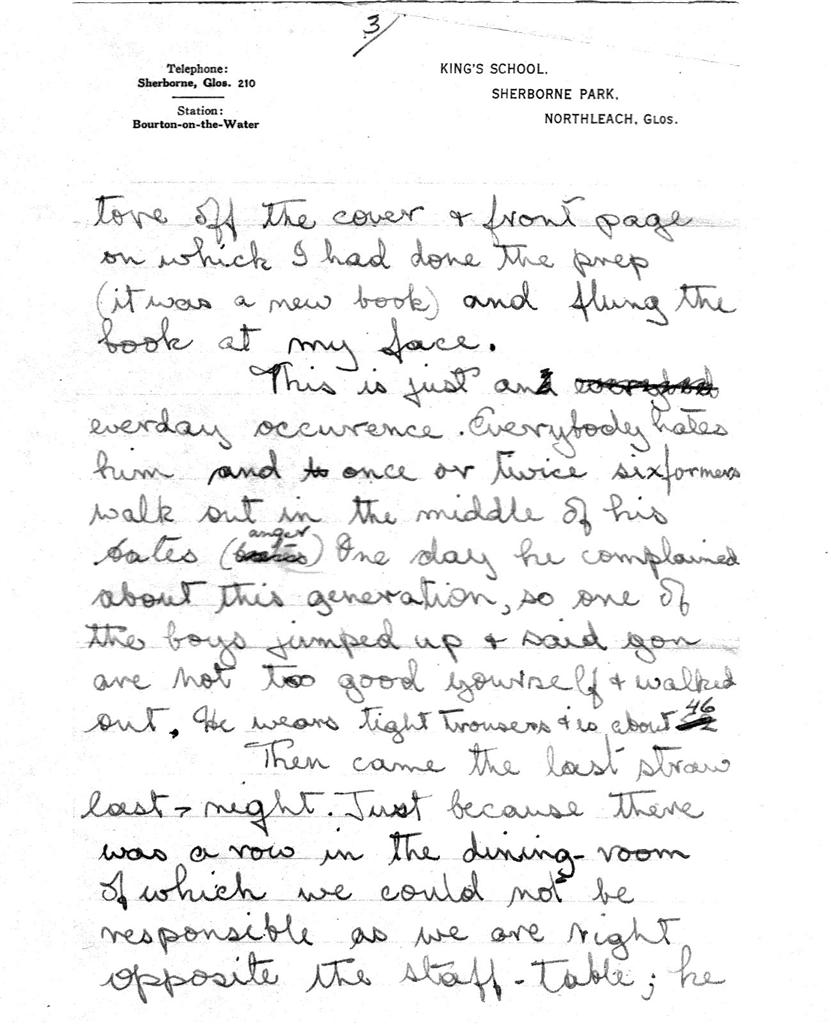 3
Telephone:
Sherborne, Glos. 210
Station:
Bourton-on-the-Water
KING'S SCHOOL.
SHERBORNE PARK,
NORTHLEACH, GLOS.
tore off the cover & front page
on which I had done the prep
(it was a new book) and flung the
book at my face.
This is just an
everday occurence. Everybody hates
him and once or twice sixformers
walk out in the middle of his
bates (anger) One day he complained
about this generation, so one of
the boys jumped up & said you
are not too good yourself & walked
out. He wears tight trousers & is about 46
Then came the last straw
last-night. Just because there
was a row in the dining-room
of which we could not be
responsible as we are right
opposite the staff-table; he